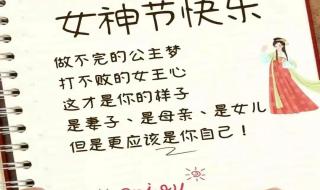 女神节快乐
做不完的公主梦
打不败的女王心
这才是你的样子
是妻子、是母亲、是女儿
但是更应该是你自己！